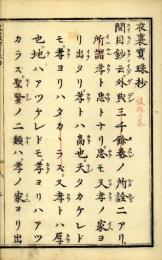 衣裏寶珠抄
開目鈔云外典三千餘卷ノ所詮ニアリ
所謂孝ト忠トナリ忠モ又孝ノ家ヨ
リ出タリ孝トハ高也天タカケレド
モ孝ヨリハタカヽラス又孝トハ厚
也地ハアツケレドモ孝ヨリハアツ
カラス聖賢ノ二類ハ孝ノ家ヨリ出